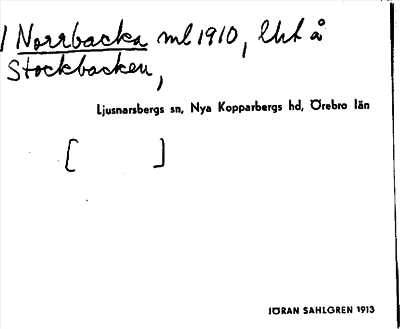 Norrbacka ml 1910, lht å
Stockbacken,
Ljusnarsbergs sn, Nya Kopparbergs hd, Örebro län
[ ]
JÖRAN SAHLGREN 1913